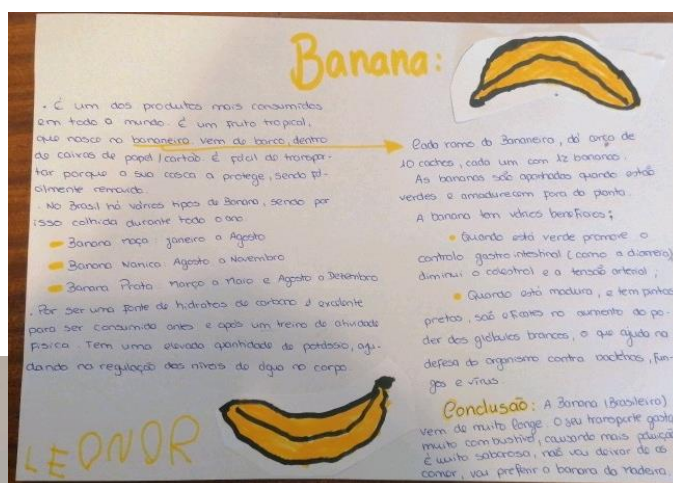 Banana:
. É um dos produtos mais consumidos
em todo o mundo. É um fruto tropical,
que nasce na bananeira, vem de barco, dentro
de caixas de papel / cartão. É fácil de transpor-
tar porque a sua casca a protege, sendo fá-
cilmente removida.
. No Brasil há vários tipos de Banana, sendo por
isso colhida durante todo o ano.
Banana maça: janeiro a Agosto
Banana Nanica: Agosto a Novembro
Banana Prata: março a Maio e Agosto a Dezembro
. Por ser uma fonte de hidratos de carbono é excelente
para ser consumida antes e após um treino de atividade
Física. Tem uma elevada quantidade de potássio, aju-
dando na regulação dos níveis de água no corpo.
LEONOR
Cada ramo da Bananeira, dá cerca de
10 caches, cada um com 12 bananas.
As bananas são apanhadas quando estão
verdes e amadurecem fora da planta.
A banana tem vários benefícios;
Quando está verde promove o
controlo gastro intestinal (como a diarreia)
diminui o colestrol e a tensão arterial;
Quando está madura, e tem pintas
pretas, são eficazes no aumento do po-
der dos glóbulos brancos, o que ajuda na
defesa do organismo contra bactérias, fun-
gos e vírus.
Conclusão: A Banana (Brasileira)
vem de muito longe. O seu transporte gasta
muito combustível, causando mais poluição
É muito saborosa, não vou deixar de as
comer, vou preferir a banana da madeira.